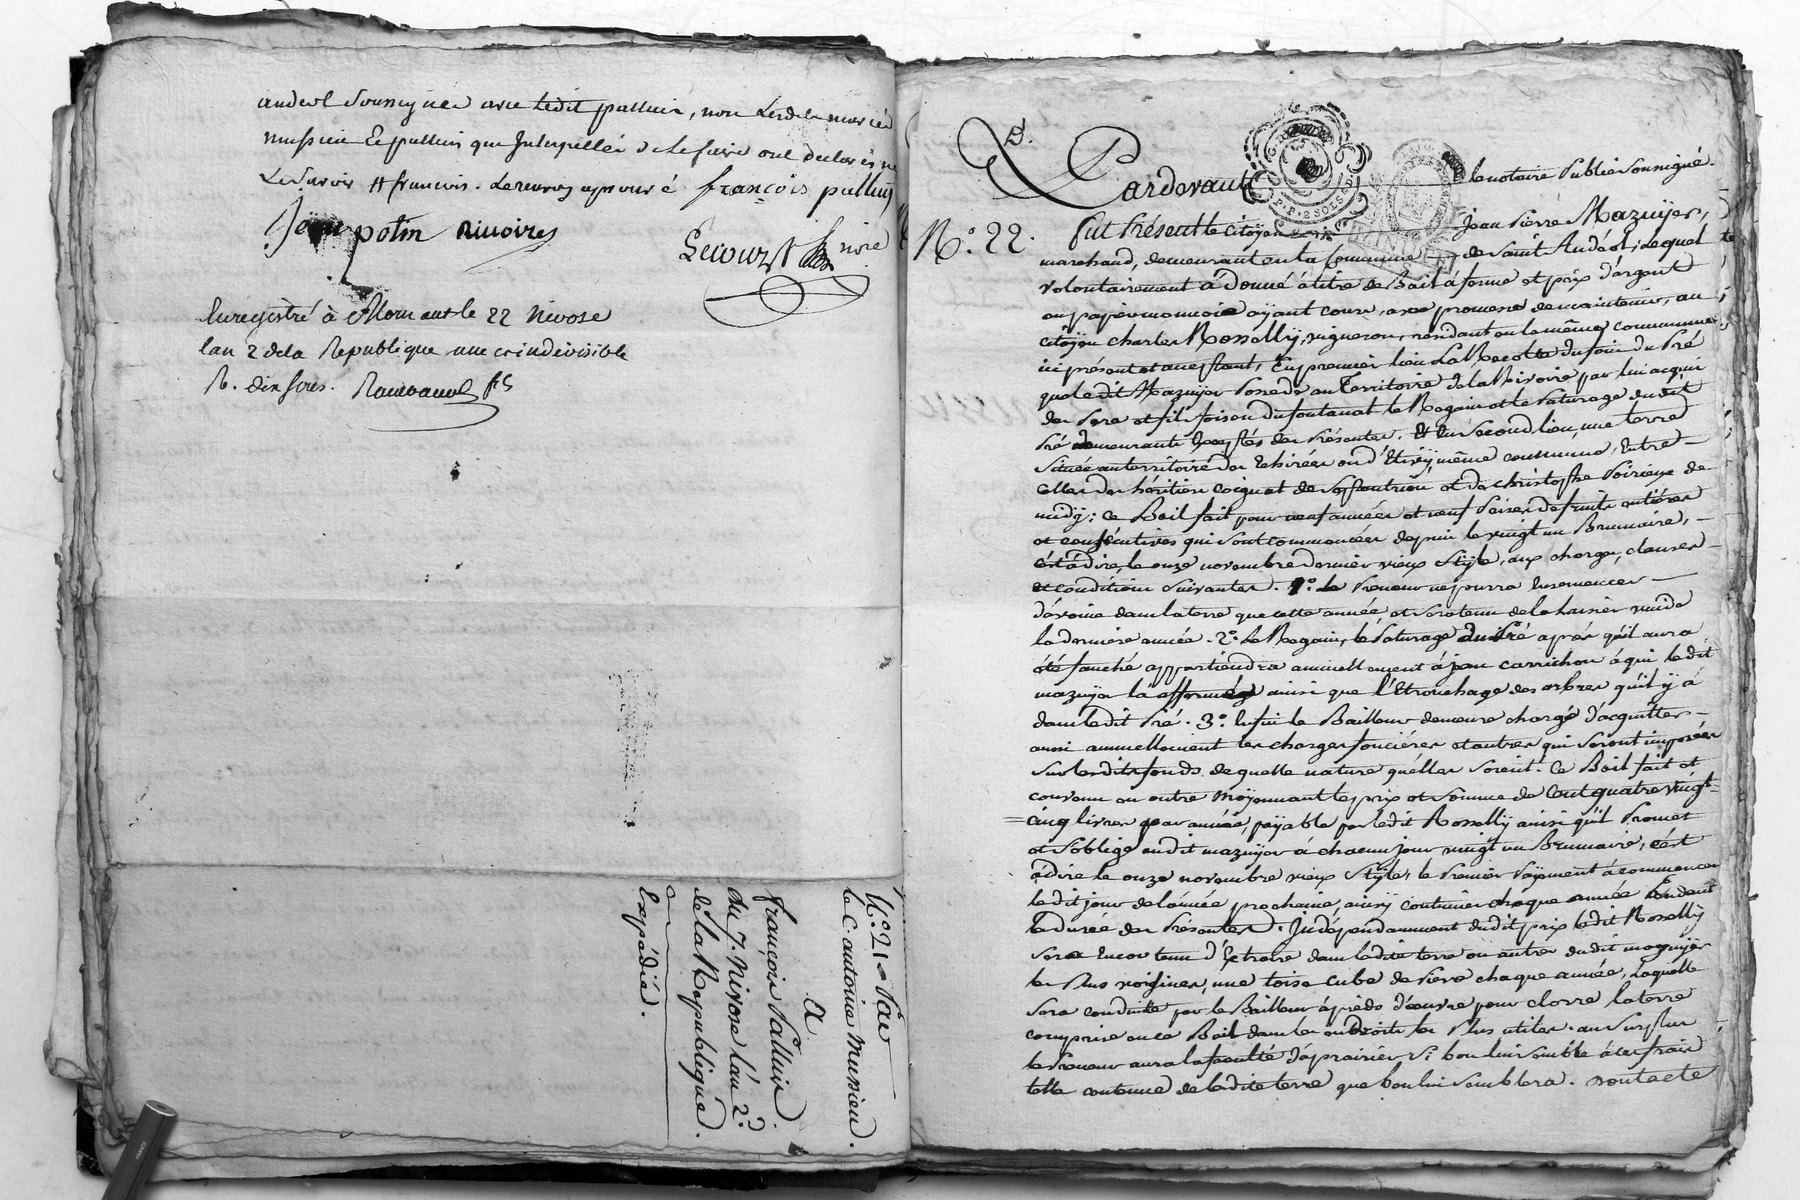 andeol soussigné avec ledit palluis, non lesdits mariés
mussieu et palluis que Interpellés de le faire ont declarés ne
le savoir # françois. le renvoy aprouvé françois palluis
Jean potin Rivoires
Lecourt nore
Enregistré à Mornant le 22 Nivose
lan 2 dela Republique une et indivisible
R. dix sous.
N.o 21 Par
le C. antoine mussieu.
A
françois Palluis.
du 7. Nivose l'an 2.e
de la Republique.
Expédié.
D.
Pardevant le notaire Public soussigné.
N.o 22. fut Présent le citoyen Jean Pierre Mazuyer,
marchand, demeurant en la Commune de Saint Andéol; Lequel
volontairement à Donné à titre de Bail à ferme et prix d'argent
ou papier monnoie ayant cours, avec promesse de maintenir, au
citoyen charles Rosselly, vigneron, résidant en la même commune
ici présent et acceptant, En premier lieu La Recolte du foin du Pré
que ledit Mazuyer Possede au Territoire de la Rivoire par lui acquis
de Pere et fils foison du fontanat le Regain et le Paturage dudit
Pré demeurants Exceptés des Présentes. Et En Second lieu, une terre
Située au territoire des Echirées ou d'Etivy, même commune, Entre
celles des héritiers Coignet de et de christophe Poirieux de
midy; ce Bail fait pour neuf années et neuf Prises de fruits entières
et consécutives qui sont commencées depuis le vingt un Brumaire,
c'est à dire le onze novembre dernier vieux Style, aux charges, clauses
et conditions suivantes. 1.o le Preneur ne pourra Ensemencer
d'avoine dans la terre que cette année et sera tenu de la laisser vuide
la derniere année. 2.o Le Regain, le Paturage dudit Pré après qu'il aura
été fauché appartiendra annuellement à jean carrichon à qui ledit
mazuyer la affermé ainsi que l'Etrouchage des arbres qu'il y à
dans ledit Pré. 3.o Enfin le Bailleur demeure chargé d'acquitter
aussi annuellement les charges foncières et autres qui seront imposées
sur lesdits fonds de quelle nature quelles soient. Ce Bail fait et
convenu en outre moyennant le prix et somme de Cent quatre vingt
cinq livres par année, payable par ledit Rosselly ainsi qu'il Promet
et s'oblige audit mazuyer à chacun jour vingt un Brumaire, c'est
à dire le onze novembre vieux Style, le Premier Payement à commencer
ledit jour de l'année prochaine, ainsy continuer chaque année Pendant
la durée des Présentes. Indépendamment dudit prix ledit Rosselly
sera Encor tenu d'Extraire dans ladite terre ou autre dudit mazuyer
la Plus voisine, une toise cube de Piere chaque année, Laquelle
sera conduite par le Bailleur à pieds d'oeuvre pour clorre la terre
comprise en ce Bail dans les endroits les Plus utiles. au Surplus
le Preneur aura la faculté d'aprairier si bon lui semble à ses frais
telle contenue de ladite terre que bon lui Semblera. dont acte